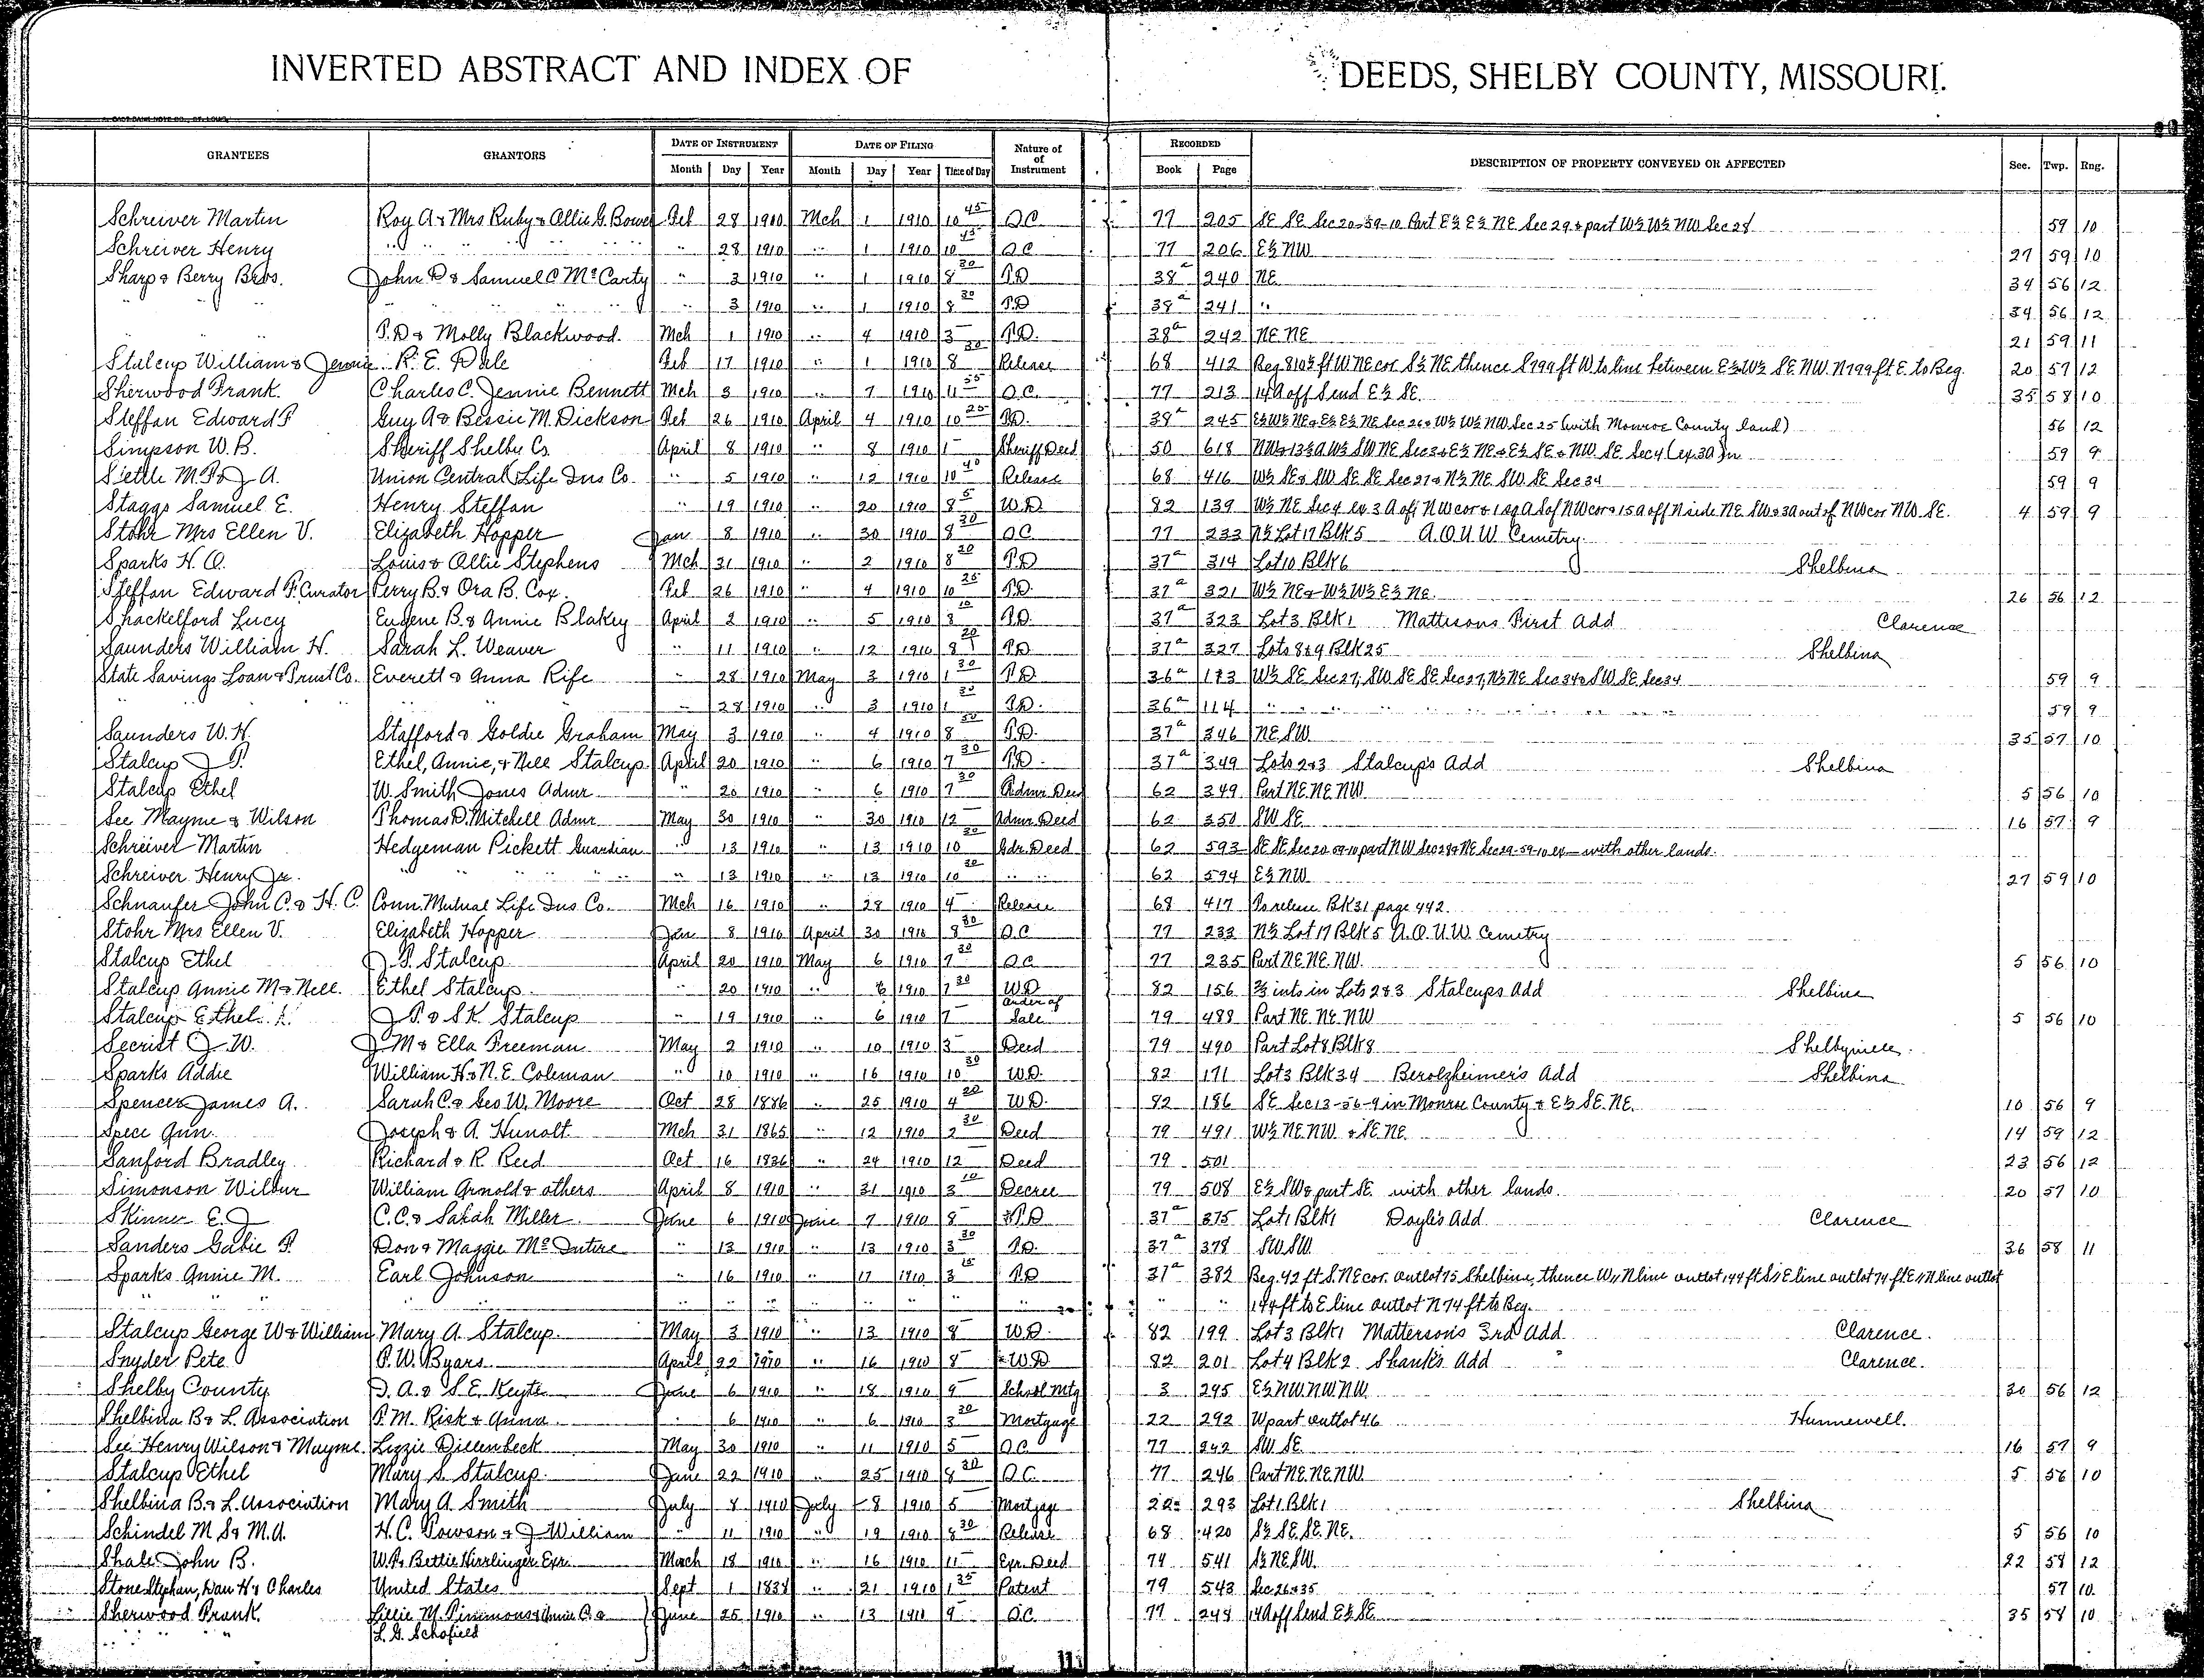 INVERTED ABSTRACT AND INDEX OF DEEDS, SHELBY COUNTY, MISSOURI.
GRANTEES GRANTORS DATE OF INSTRUMENT DATE OF FILING Nature of of Instrument RECORDED DESCRIPTION OF PROPERTY CONVEYED OR AFFECTED Sec. Twp. Rng.
Month Day Year Month Day Year Time of Day Book Page
Schreiver Martin Roy A & Mrs Ruby & Allie G. Bower Feb 28 1910 Mch 1 1910 10 45 Q.C. 77 205 SE SE Sec 20-59-10 Part E½ E½ NE Sec 29 & part W½ W½ NW Sec 28 59 10
Schreiver Henry " " " " 28 1910 " 1 1910 10 45 Q.C. 77 206 E½ NW 27 59 10
Sharp & Berry Bros. John D & Samuel C McCarty " 3 1910 " 1 1910 8 30 T.D 38a 240 NE 34 56 12
" " " " 3 1910 " 1 1910 8 30 T.D 38a 241 " 34 56 12
T.D & Molly Blackwood. Mch 1 1910 " 4 1910 3 T.D. 38a 242 NE NE 21 59 11
Stalcup William & Jennie R. E. Dale Feb 17 1910 " 1 1910 8 30 Release 68 412 Beg 810½ ft W NE cor S½ NE thence S 799 ft W to line between E½ W½ SE NW N 799 ft E to Beg. 20 57 12
Sherwood Frank. Charles C. Jennie Bennett Mch 3 1910 " 7 1910 11 55 Q.C. 77 213 14 A off S end E½ SE. 35 58 10
Steffan Edward F Guy A & Bessie M. Dickson Feb 26 1910 April 4 1910 10 25 T.D. 38a 245 E½ W½ NE & E½ E½ NE Sec 26 & W½ W½ NW Sec 25 (with Monroe County land) 56 12
Simpson W. B. Sheriff Shelby Co. April 8 1910 " 8 1910 1 Sheriff Deed 50 618 NW & 13½ A W½ SW NE Sec 3 & E½ NE & E½ SE & NW SE Sec 4 (ex 3 A) 59 9
Settle M. F. & J A. Union Central Life Ins Co. " 5 1910 " 12 1910 10 40 Release 68 416 W½ SE & SW SE SE Sec 27 & N½ NE SW SE Sec 34 59 9
Staggs Samuel E. Henry Steffan " 19 1910 " 20 1910 8 5 W.D 82 139 W½ NE Sec 4 ex 3 A off NW cor & 1 sq A S of NW cor & 15 A off N side NE SW & 3 A out of NW cor NW SE. 4 59 9
Stohr Mrs Ellen V. Elizabeth Hopper Jan 8 1910 " 30 1910 8 30 Q.C 77 233 N½ Lot 17 Blk 5 A.O.U.W Cemetry.
Sparks H. O. Louis & Allie Stephens Mch 31 1910 " 2 1910 8 20 T.D 37a 314 Lot 10 Blk 6 Shelbina
Steffan Edward F. Curator Perry B. & Ora B. Cox. Feb 26 1910 " 4 1910 10 25 T.D. 37a 321 W½ NE & W½ W½ E½ NE. 26 56 12
Shackelford Lucy Eugene B. & Annie Blakey April 2 1910 " 5 1910 8 10 T.D. 37a 323 Lot 3 Blk 1 Mattisons First Add Clarence
Saunders William H. Sarah L. Weaver " 11 1910 " 12 1910 8 20 T.D 37a 327 Lots 8 & 9 Blk 25 Shelbina
State Savings Loan & Trust Co. Everett & Anna Rife " 28 1910 May 3 1910 1 30 T.D 36a 173 W½ SE Sec 27, SW SE SE Sec 27, N½ NE Sec 34 & SW SE Sec 34 59 9
" " " 28 1910 " 3 1910 1 30 T.D. 36a 114 " " " " " 59 9
Saunders W. H. Stafford & Goldie Graham May 3 1910 " 4 1910 8 50 T.D. 37a 346 NE SW. 35 57 10
Stalcup J P. Ethel, Annie, & Nell Stalcup April 20 1910 " 6 1910 7 30 T.D. 37a 349 Lots 2 & 3 Stalcup's Add Shelbina
Stalcup Ethel W. Smith Jones Admr " 20 1910 " 6 1910 7 30 Admr Deed 62 349 Part NE NE NW 5 56 10
See Mayme & Wilson Thomas D. Mitchell Admr May 30 1910 " 30 1910 12 Admr. Deed 62 350 SW SE 16 57 9
Schreiver Martin Hedgeman Pickett Guardian " 13 1910 " 13 1910 10 30 Gdn. Deed 62 593 SE SE Sec 20 59-10 part NW Sec 28 & NE Sec 29-59-10 ex — with other lands.
Schreiver Henry Jr. " " " " 13 1910 " 13 1910 10 30 " " 62 594 E½ NW 27 59 10
Schnaufer John C. & H. C. Conn. Mutual Life Ins Co. Mch 16 1910 " 28 1910 4 Release 68 417 To release BK 31 page 442.
Stohr Mrs Ellen V. Elizabeth Hopper Jan 8 1910 April 30 1910 8 30 Q.C 77 233 N½ Lot 17 Blk 5 A.O.U.W. Cemetry
Stalcup Ethel J. P. Stalcup April 20 1910 May 6 1910 7 30 Q.C 77 235 Part NE. NE. NW. 5 56 10
Stalcup Annie M & Nell. Ethel Stalcup. " 20 1910 " 6 1910 7 30 W.D 82 156 ⅔ ints in Lots 2 & 3 Stalcups Add Shelbina
Stalcup Ethel J. P. & S. K. Stalcup " 19 1910 " 6 1910 7 Order of Sale 79 488 Part NE. NE. NW 5 56 10
Secrist J. W. J M & Ella Freeman May 2 1910 " 10 1910 3 Deed 79 490 Part Lot 8 Blk 8 Shelbyville.
Sparks Addie William H. & N. E. Coleman " 10 1910 " 16 1910 10 30 W.D. 82 171 Lot 3 Blk 34 Berolzheimer's Add Shelbina
Spencer James A. Sarah C. & Geo W. Moore Oct 28 1886 " 25 1910 4 20 W.D. 82 186 SE Sec 13-56-9 in Monroe County & E½ SE. NE. 10 56 9
Spece Ann. Joseph & A. Hunolt. Mch 31 1865 " 12 1910 2 30 Deed 79 491 W½ NE NW & SE NE 14 59 12
Sanford Bradley Richard & R. Reed Oct 16 1836 " 24 1910 12 Deed 79 501 23 56 12
Simonson Wilbur William Arnold & others April 8 1910 " 31 1910 3 10 Decree 79 508 E½ SW & part SE. with other lands. 20 57 10
Skinner E. J C. C. & Sarah Miller June 6 1910 June 7 1910 8 T.D 37a 375 Lot 1 Blk 1 Doyle's Add Clarence
Sanders Gabie P. Don & Maggie McIntire " 13 1910 " 13 1910 3 30 T.D. 37a 378 SW SW. 36 58 11
Sparks Annie M. Earl Johnson " 16 1910 " 17 1910 3 15 T.D 37a 382 Beg. 42 ft S. NE cor. outlot 75 Shelbina, thence W // N line outlot 144 ft S // E line outlot 74 ft E // N line outlot
" " " " " " " " " 144 ft to E line outlot N 74 ft to Beg.
Stalcup George W & William Mary A. Stalcup. May 3 1910 " 13 1910 8 W.D. 82 199 Lot 3 Blk 1 Matterson's 3rd Add Clarence.
Snyder Pete P. W. Byars April 22 1910 " 16 1910 8 W.D 82 201 Lot 4 Blk 2 Shank's Add Clarence.
Shelby County J. A. & S. E. Keyte June 6 1910 " 18 1910 9 School Mtg 3 295 E½ NW. NW NW 30 56 12
Shelbina B & L. Association P. M. Risk & Anna " 6 1910 " 6 1910 3 30 Mortgage 22 292 W part outlot 46 Hunnewell.
See Henry Wilson & Mayme Lizzie Dillenbeck May 30 1910 " 11 1910 5 Q.C 77 242 SW SE. 16 57 9
Stalcup Ethel Mary S. Stalcup. June 22 1910 " 25 1910 8 30 Q.C. 77 246 Part NE. NE. NW. 5 56 10
Shelbina B. & L. Association Mary A Smith July 8 1910 July 8 1910 5 Mortgage 22 293 Lot 1 Blk 1 Shelbina
Schindel M. S & M. A. H. C. Powson & J William " 11 1910 " 19 1910 8 30 Release 68 420 S½ SE. SE. NE. 5 56 10
Shale John B. W. F. Bettie Hirrlinger Exr. March 18 1910 " 16 1910 11 Exr. Deed 74 541 S½ NE SW. 22 58 12
Stone Stephan, Dan H & Charles United States Sept 1 1838 " 21 1910 1 35 Patent 79 543 Sec 26 & 35 57 10
Sherwood Frank. Lillie M. Pimmons & Annie C. & June 25 1910 " 13 1910 9 Q.C. 77 248 14 A off S end E½ SE 35 58 10
" " L. G. Schofield